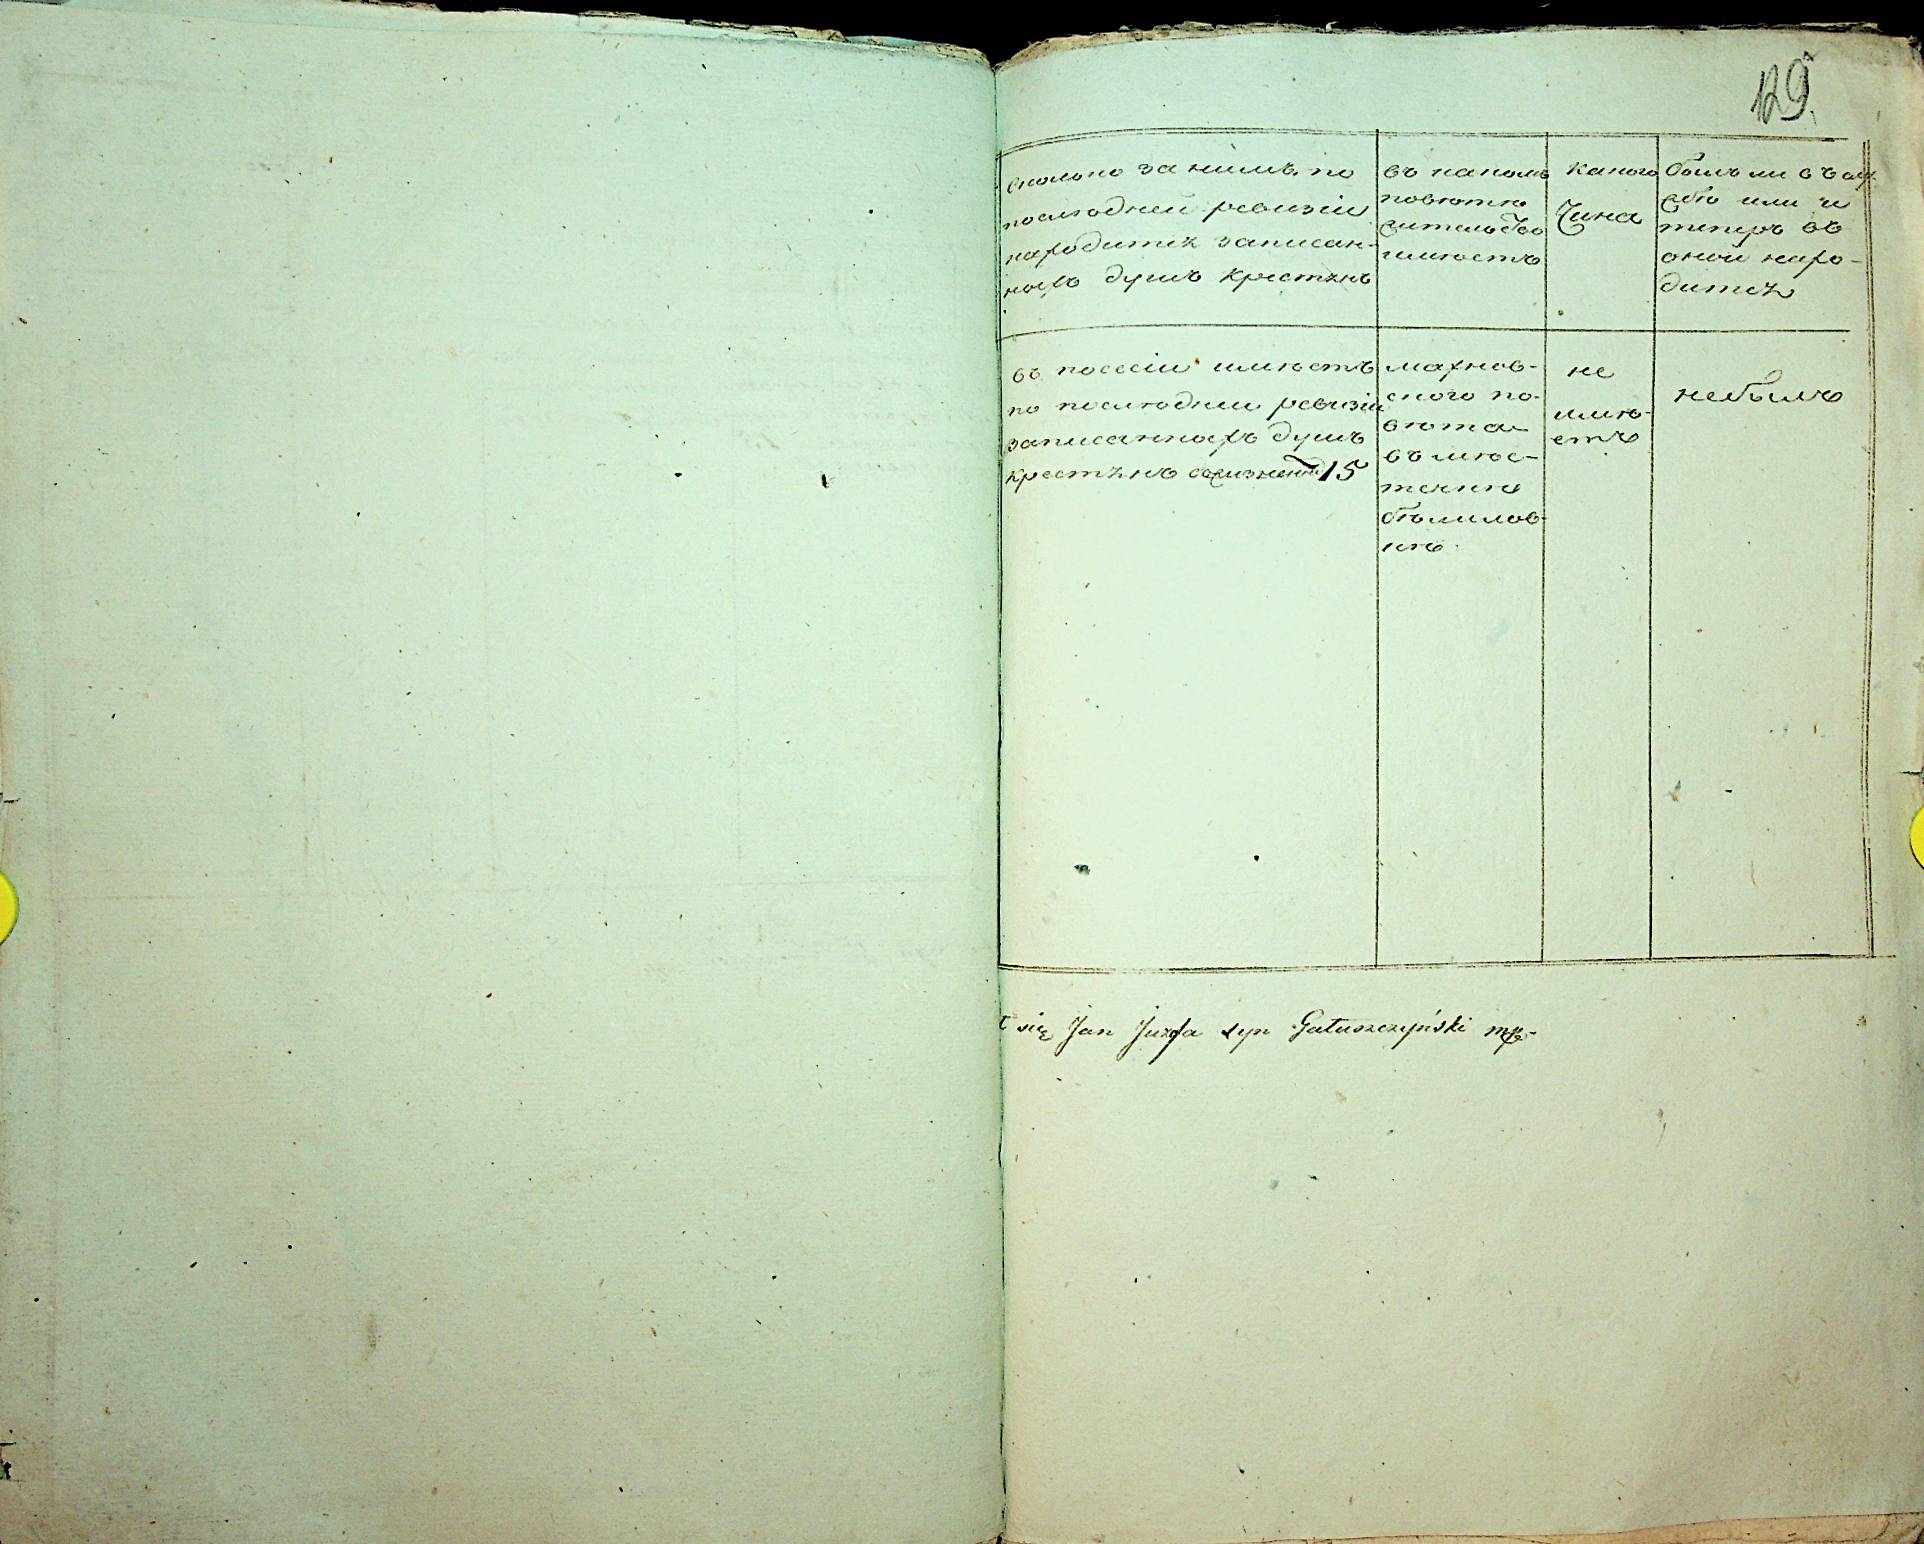 129.
сколько за нимъ по
последней ревизіи
находится записан-
ныхъ душъ крестянъ
въ какомъ
повѣтѣ
жительство
имѣетъ
какого
чина
былъ ли въ слу
жбѣ или и
теперъ въ
оной нахо-
дится
въ посесіи имѣетъ
по последней ревизіи
записанныхъ душъ
крестянъ 15
махнов-
ского по-
вѣта
въ мѣс-
течке
бѣлилов-
кѣ
не
имѣ-
етъ
небылъ
ł się Jan Juzefa syn Gałuszczyński mp-